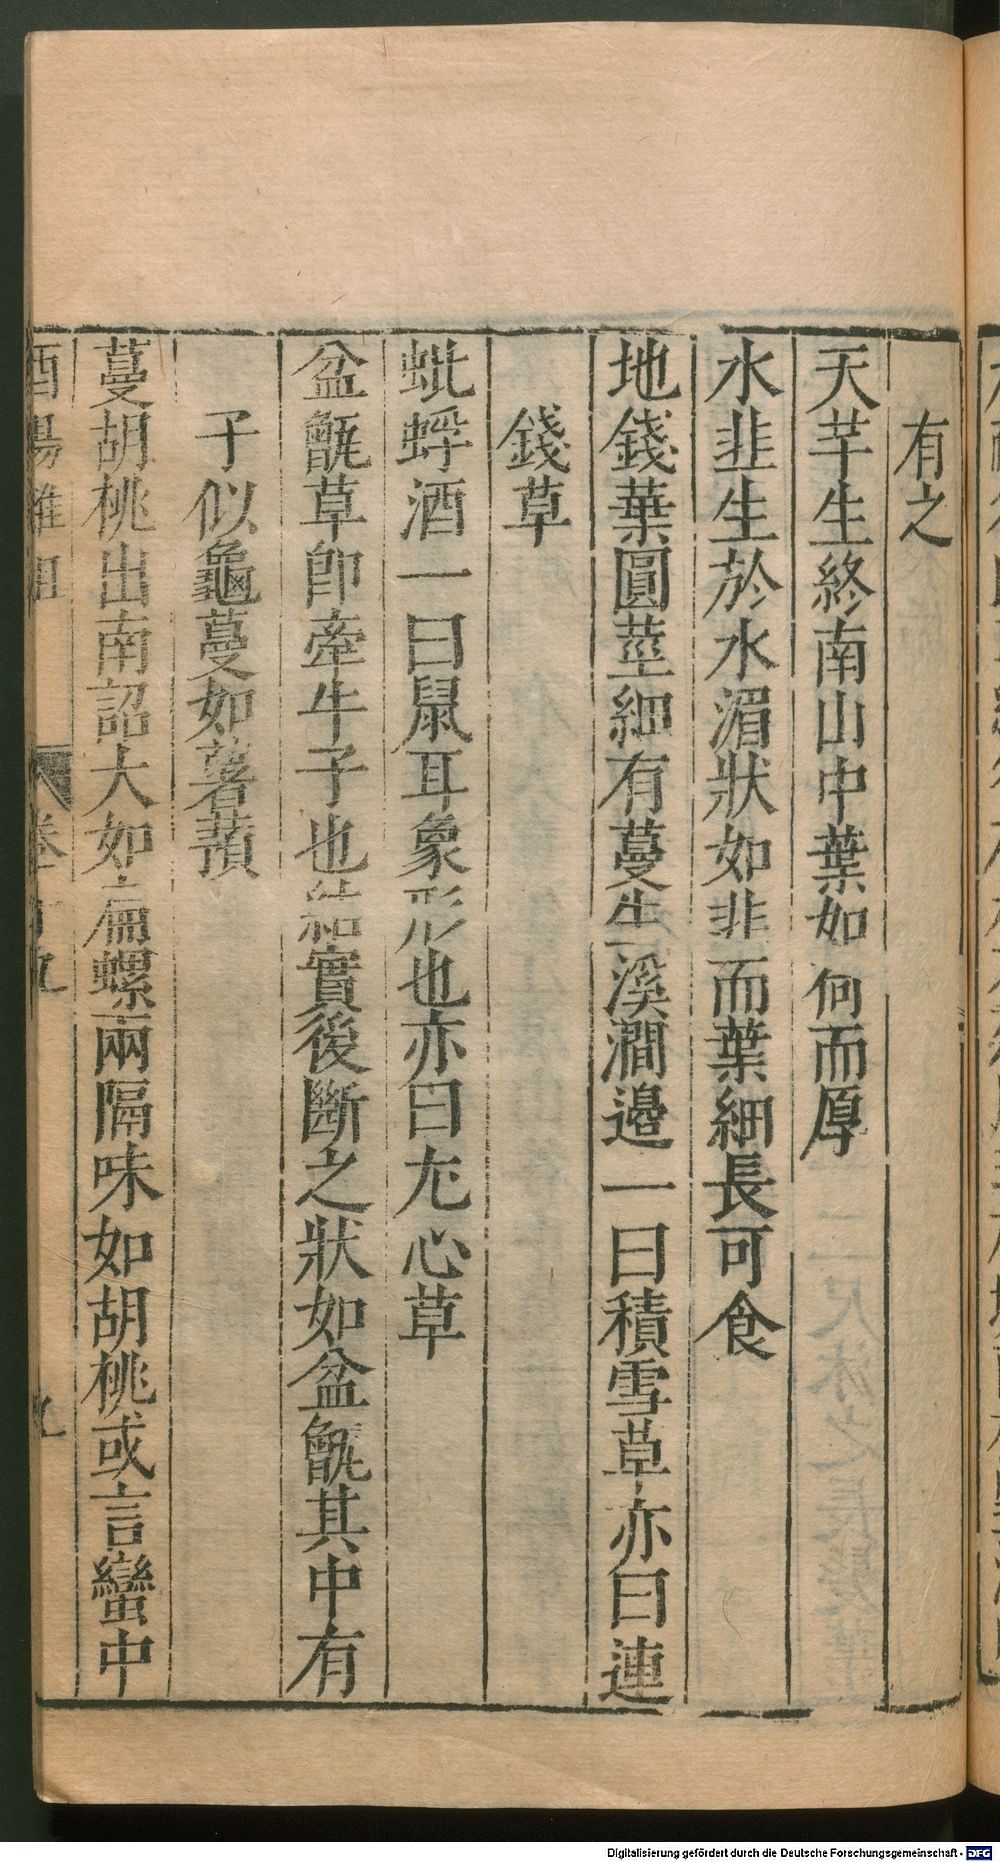 有之
天芊生終南山中葉如荷而厚
水韭生於水湄狀如韭而葉細長可食
地錢葉圓莖細有蔓生溪澗邊一曰積雪草亦曰連
錢草
蚍蜉酒一曰鼠耳象形也亦曰无心草
盆甑草即牽牛子也結實後斷之狀如盆甑其中有
子似龜蔓如薯蕷
蔓胡桃出南詔大如扁螺兩隔味如胡桃或言蠻中
酉陽雜俎 卷十九 九
Digitalisierung gefördert durch die Deutsche Forschungsgemeinschaft - DFG